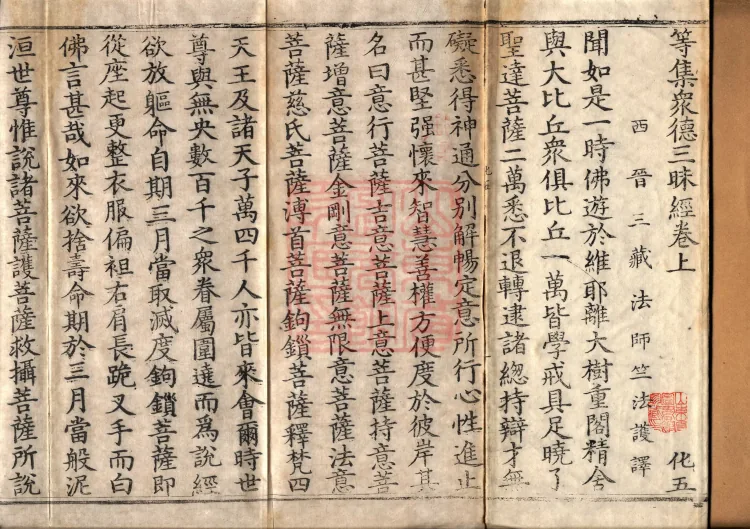 等集衆德三昧經卷上
化五
西晉三藏法師竺法護譯
聞如是一時佛遊於維耶離大樹重閣精舍
與大比丘衆俱比丘一萬皆學戒具足曉了
聖達菩薩二萬悉不退轉逮諸緫持辯才無
礙悉得神通分別解暢定意所行心性進止
而甚堅强懷來智慧善權方便度於彼岸其
名曰意行菩薩吉意菩薩上意菩薩持意菩
薩增意菩薩金剛意菩薩無限意菩薩法意
菩薩慈氏菩薩溥首菩薩鉤鎖菩薩釋梵四
天王及諸天子萬四千人亦皆來會爾時世
尊與無央數百千之衆眷屬圍遶而爲說經
欲放軀命自期三月當取滅度鉤鎖菩薩即
從座起更整衣服偏袒右肩長跪叉手而白
佛言甚哉如來欲捨壽命期於三月當般泥
洹世尊惟說諸菩薩護菩薩救攝菩薩所說